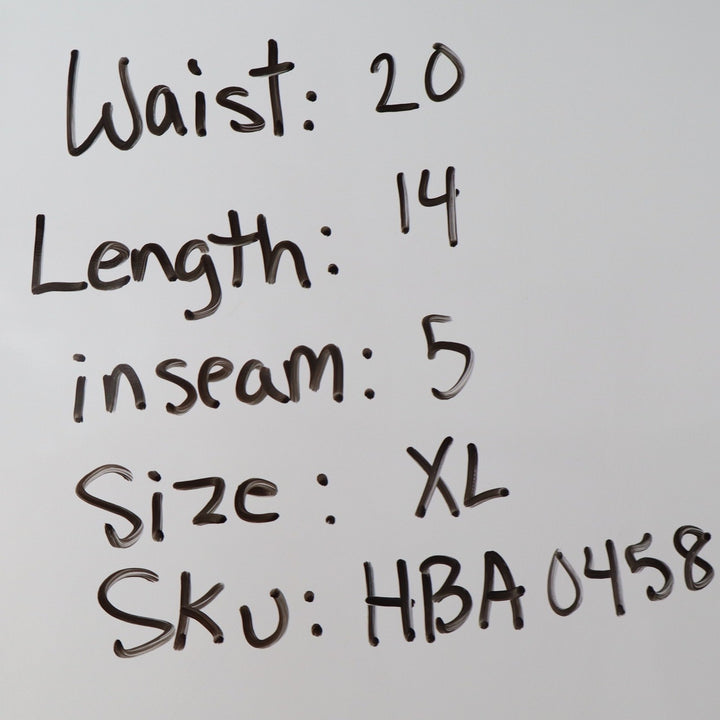 Waist: 20
Length: 14
inseam: 5
Size: XL
Sku: HBA 0458